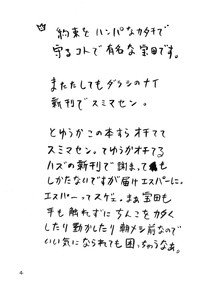 約束をハンパなカタチで
守るコトで有名な宝田です。
またたしてもダラシのナイ
新刊でスミマセン。
とゆうかこの本すらオチてて
スミマセン。てゆうかオチてる
ハズの新刊で詢まっても
しかたないですが届けエスパーに。
エスパーってスゲェ。まぁ宝田も
手も触れずにちんこをカタく
したり動かしたり朝メシ前なので
いい気になられても困っちゃうなぁ。
4